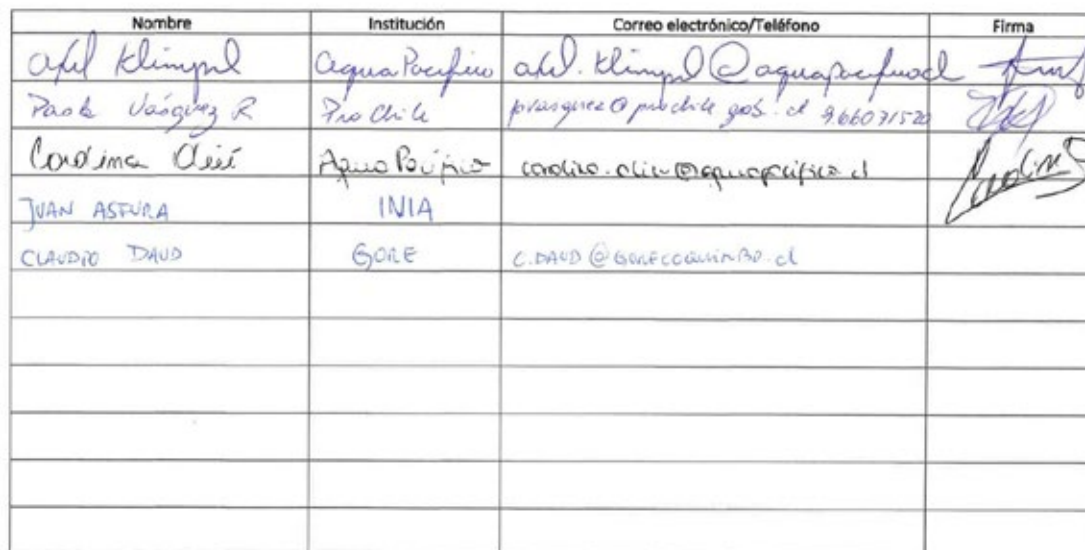 Nombre Institución Correo electrónico/Teléfono Firma
Axel Klimpel AquaPacífico axel.klimpel@aquapacifico.cl
Paola Vásquez R ProChile pvasquez@prochile.gob.cl
Carolina AquaPacífico
JUAN ASTURA INIA
CLAUDIO DAUD GORE C.DAUD@GORECOQUIMBO.cl